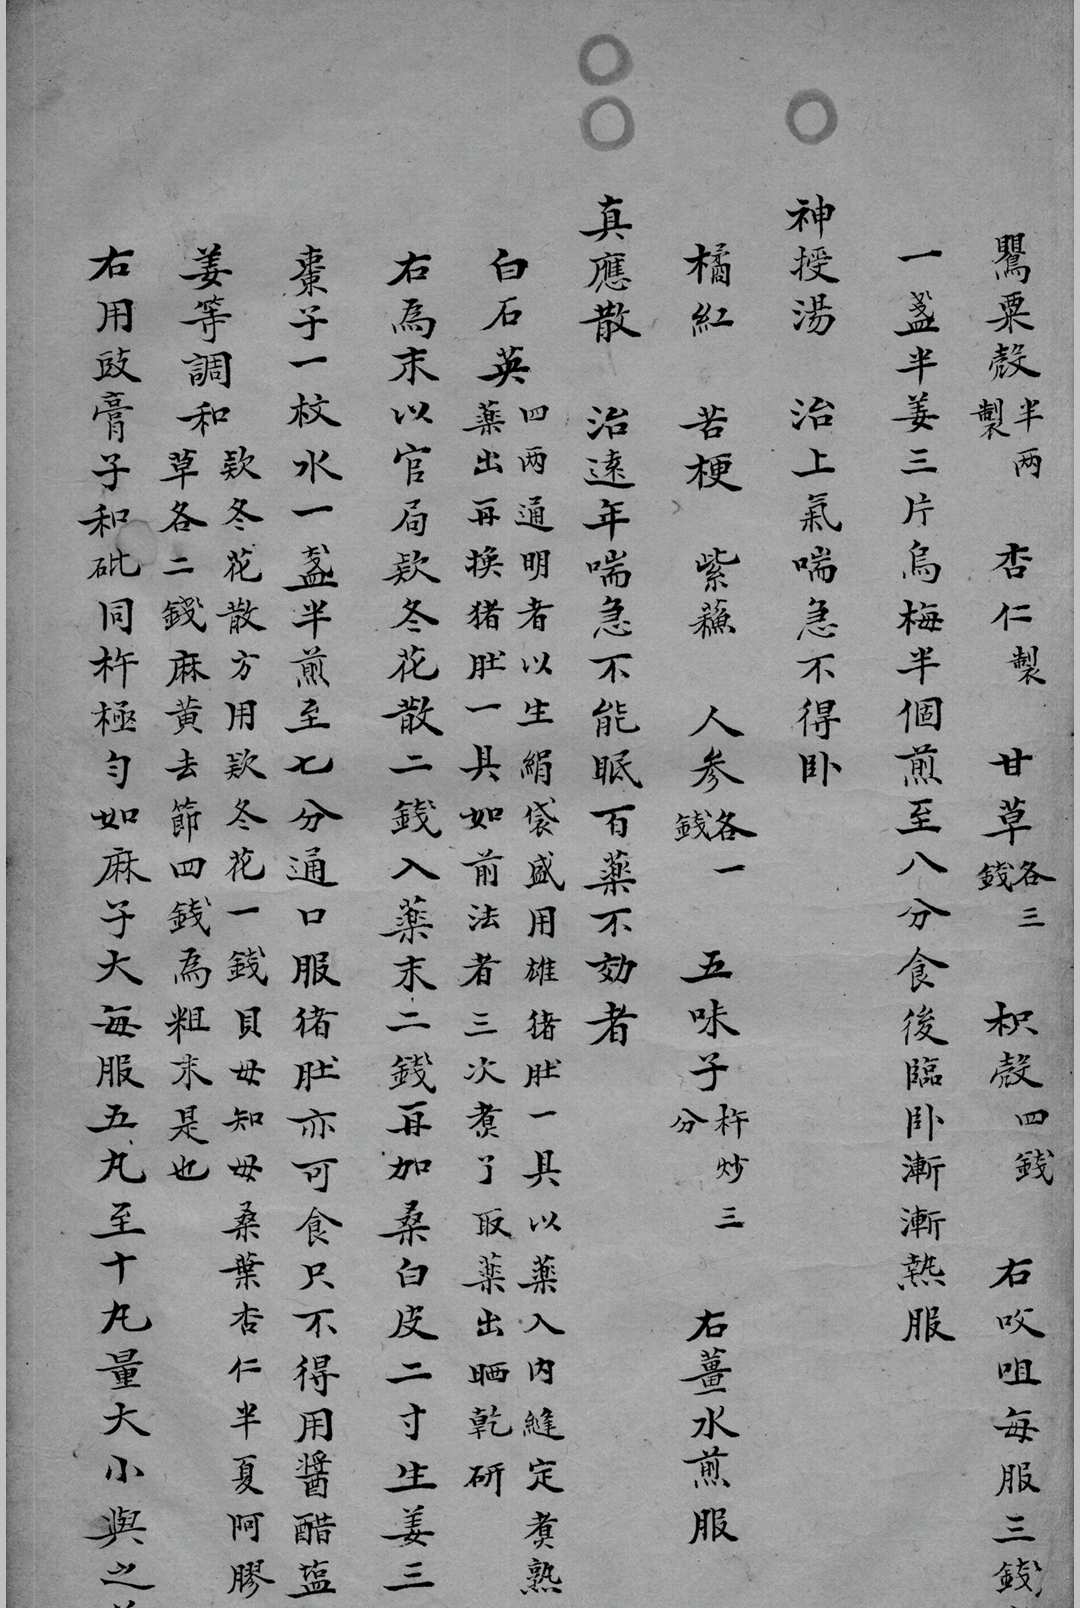 鸎粟殼半两製 杏仁製 甘草各三錢 枳殼四錢 右㕮咀每服三錢
一盞半姜三片烏梅半個煎至八分食後臨卧漸漸熱服
神授湯 治上氣喘急不得卧
橘紅 苦梗 紫蘓 人参各一錢 五味子杵炒三分 右薑水煎服
真應散 治遠年喘急不能眠百薬不効者
白石英四两通明者以生絹袋盛用雄猪肚一具以薬入内縫定煑熟薬出再換猪肚一具如前法者三次煑了取薬出晒乾研
右為末以官局欵冬花散二錢入薬末二錢再加桑白皮二寸生姜三
棗子一枚水一盞半煎至七分通口服猪肚亦可食只不得用醤醋塩
姜等調和欵冬花散方用欵冬花一錢貝母知母桑葉杏仁半夏阿膠草各二錢麻黄去節四錢為粗末是也
右用豉膏子和砒同杵極匀如麻子大每服五丸至十丸量大小與之